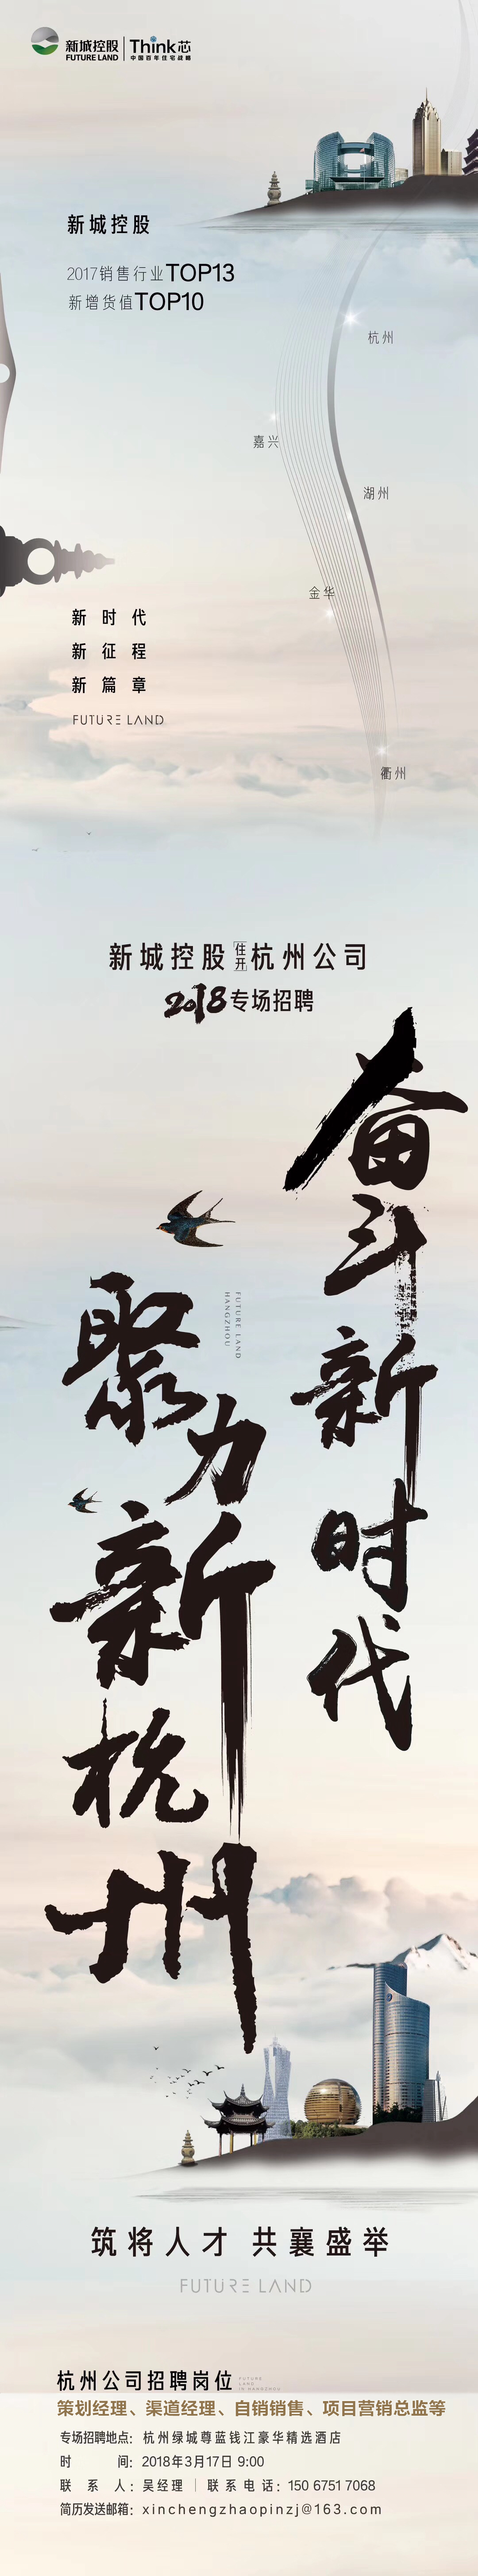 新城控股
FUTURE LAND
Think芯
中国百年住宅战略
新城控股
2017销售行业TOP13
新增货值TOP10
杭州
嘉兴
湖州
金华
衢州
新时代
新征程
新篇章
FUTURE LAND
新城控股住开杭州公司
2018专场招聘
奋斗新时代
聚力新杭州
FUTURE LAND
HANGZHOU
筑将人才 共襄盛举
FUTURE LAND
杭州公司招聘岗位
FUTURE
LAND
IN HANGZHOU
策划经理、渠道经理、自销销售、项目营销总监等
专场招聘地点：杭州绿城尊蓝钱江豪华精选酒店
时间：2018年3月17日 9:00
联系人：吴经理｜联系电话：150 6751 7068
简历发送邮箱：xinchengzhaopinzj@163.com